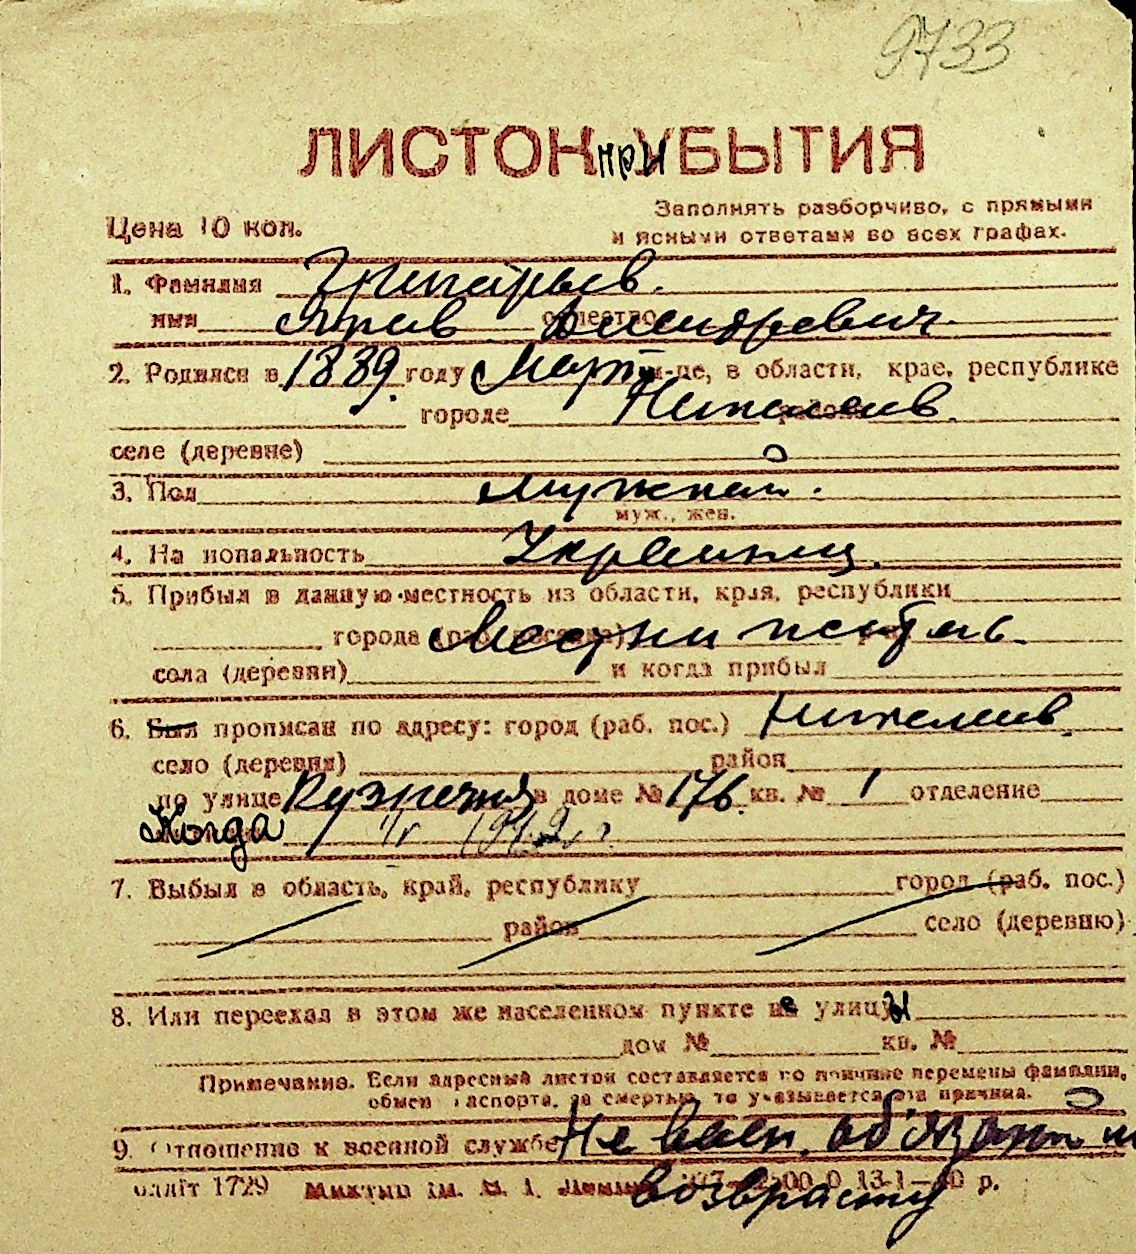 9733
ЛИСТОК при УБЫТИЯ
Цена 10 коп.
Заполнять разборчиво, с прямыми
и ясными ответами во всех графах.
1. Фамилия Григорьев.
имя отчество
2. Родился в 1889. году Март м-це, в области, крае, республике
городе Николаев.
селе (деревне)
3. Пол Мужской.
муж., жен.
4. Национальность Украинец.
5. Прибыл в данную местность из области, края, республики
города Местни житель
села (деревни) и когда прибыл
6. Был прописан по адресу: город (раб. пос.) Николаев.
село (деревня) район
по улице Кузнечная в доме № 176. кв. № 1 отделение
Когда 1942 г.
7. Выбыл в область, край, республику город (раб. пос.)
район село (деревню)
8. Или переехал в этом же населенном пункте не улицы
дом № кв. №
Примечание. Если адресный листок составляется по причине перемены фамилии,
обмен паспорта, за смертью, то указывается эта причина.
9. Отношение к военной службе Не воен. об'язаной
возврасту
1729 13-1-40 р.